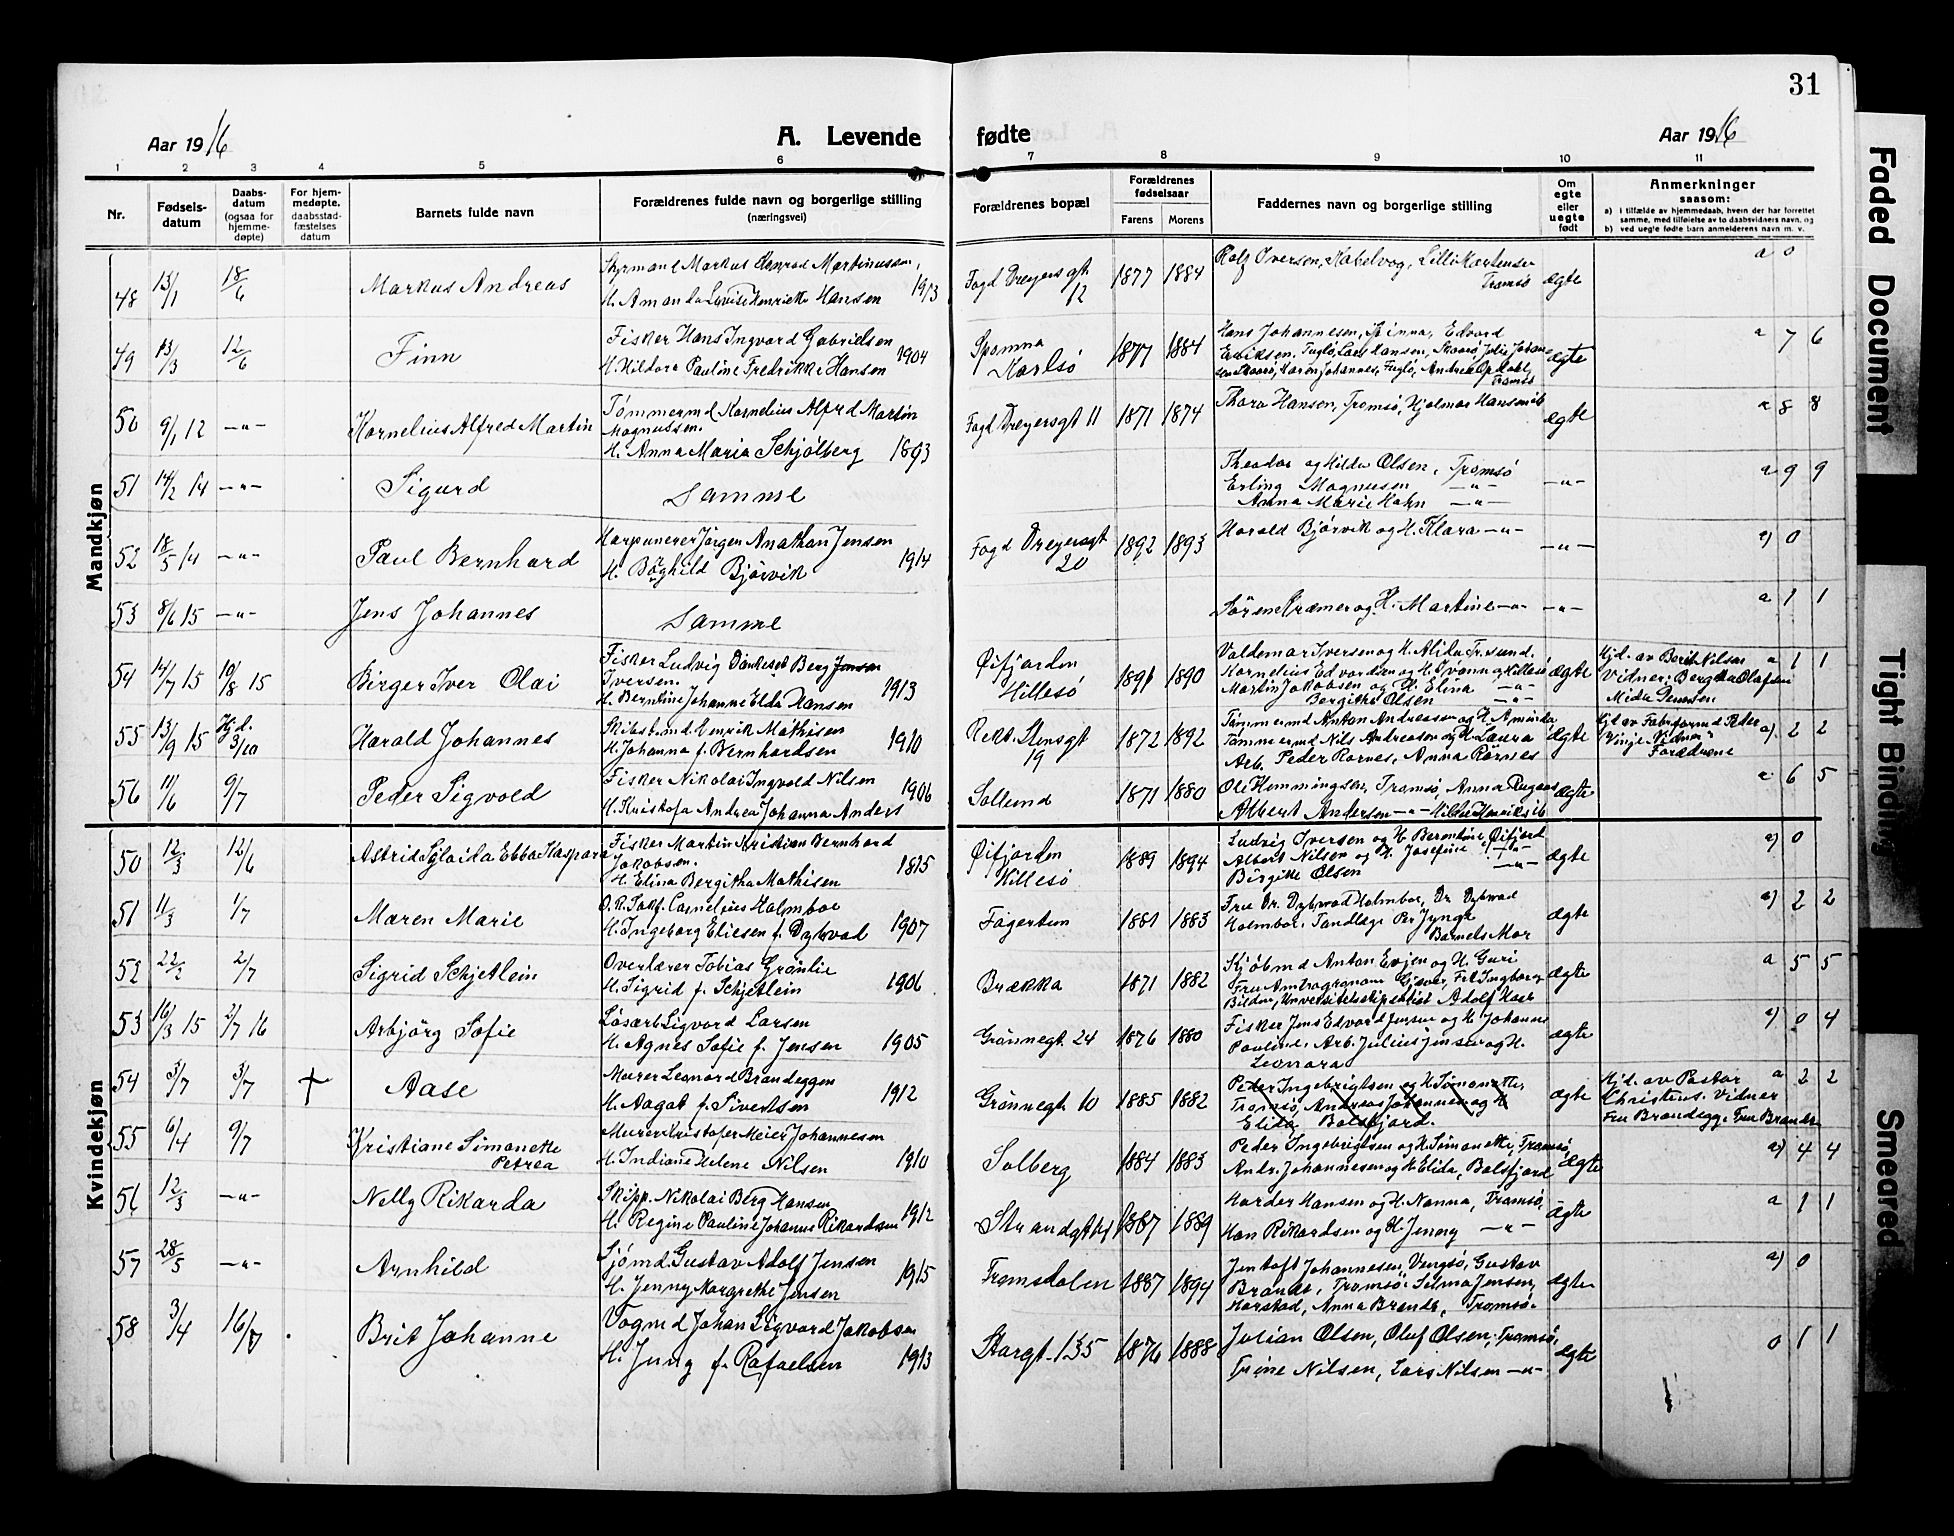 31
Aar 1916
A. Levende
fødte
Aar 1916
1 2 3 4 5 6 7 8 9 10 11
Nr.
Fødsels-
datum
Daabs-
datum
(ogsaa for
hjemme-
døpte)
For hjem-
medøpte,
daabsstad-
fæstelses
datum
Barnets fulde navn
Forældrenes fulde navn og borgerlige stilling
(næringsvei)
Forældrenes bopæl
Forældrenes
fødselsaar
Farens
Morens
Faddernes navn og borgerlige stilling
Om
egte
eller
uegte
født
Anmerkninger
saasom:
a) i tilfælde av hjemmedaab, hvem der har forrettet
samme, med tilføielse av to daabsvidners navn, og
b) ved uegte født barn anmelderens navn m. v.
Mandkjøn
48 13/1 18/6 Markus Andreas
Styrmand Markus Konrad Martinussen,
H. Amanda Lovise Henriette Hansen 1913
Fogd Dreyersgt 12 1877 1884
Rolf Iversen, Kabelvog, Lilli Mortensen
Tromsø ægte a 0
49 13/3 12/6 Finn
Fisker Hans Ingvard Gabrielsen
H. Hildora Pauline Fredrikke Hansen 1904
Karlsø 1877 1884
Hans Johannesen, Spinna, Edvard
Eriksen, Fuglø, Lars Hansen, Skaarø, Jolie Johan-
sen Skaarø, Karen Johannes, Fuglø,
Tromsø ægte a 7 6
50 9/1 12 -"- Kornelius Alfred Martin
Tømmermd Kornelius Alfrd Martin
Magnussen.
H. Anna Maria Schjølberg 1893
Fogd Dreyersgt 11 1871 1874
Thora Hansen, Tromsø, Hjalmar Hansen ib ægte a 8 8
51 14/2 14 -"- Sigurd
Samme
Theodor og Hilda Olsen, Tromsø
Erling Magnusen -"-
Anna Marie Hahn -"- -"- a 9 9
52 18/5 14 -"- Paul Bernhard
Harpunerer Jørgen Anathon Jensen
H. Borghild Bjørvik 1914
Fogd Dreyersgt 20 1892 1893
Harald Bjørvik og H. Klara -"- -"- a) 0
53 8/6 15 -"- Jens Johannes
Samme
Søren Kræmer og H. Martine -"- -"- a 1 1
54 14/7 15 10/8 15 Birger Iver Olai
Fisker Ludvig Danksert Berg Jensen
Iversen.
H. Berntine Johanne Elda Hansen 1913
Øifjorden
Hillesø 1891 1890
Valdemar Iversen og H. Alida Tr.sund.
Kornelius Edvardsen og H. Ivanna Hillesø
Martin Jakobsen og H. Elina -"-
Bergithe Olsen -"- ægte
Hjd. av Berit Nilsen
Vidner: Bergitha Olafsen
a 1 1
55 13/9 15 Hjd. 3/10 Harald Johannes
Skibstmd Henrik Mathisen
H. Johanna f. Bernhardsen 1910
Rekt. Stensgt 19 1872 1892
Tømmermd Anton Andreassen og H. Aminda
Tømmermd Nils Andreasen og H. Laura
Arb. Peder Rørnes, Anna Rørnes ægte
Hjd av Fabrformd Peder
Vinje Vidner
Forældrene
a) 2 2
56 11/6 9/7 Peder Sigvald
Fisker Nikolai Ingvald Nilsen
H. Kristofa Andrea Johanna Anders 1906
Sollund 1871 1880
Ole Hemmingsen, Tromsø, Anna
Albert Andersen -"- ægte a 6 5
Kvindekjøn
50 12/3 12/6 Astrid Aglaida Ebba Kaspara
Fisker Martin Kristian Bernhard
Jakobsen.
H. Elina Bergitha Mathisen 1815
Øifjorden
Hillesø 1889 1894
Ludvig Iversen og H. Berentine Øifjord
Albert Nilsen og H. Josefine -"-
Birgitte Olsen -"- ægte a) 0
51 11/3 1/7 Maren Marie
O.R. Sakf. Cornelius Holmboe
H. Ingeborg Eliesen f. Dybwad 1907
Fagertun 1881 1883
Fru Dr. Dybwad Holmboe, Dr. Dybwad
Holmboe, Tandlæge Per Jynge
Barnets Mor ægte a) 2 2
52 22/2 2/7 Sigrid Schjetlein
Overlærer Tobias Grønlie
H. Sigrid f. Schjetlein 1906
Brækka 1871 1882
Kjøbmd Anton Evjen og H. Guri
Fru Amtsagronom Gjæver, Frk Ingeborg
Universitetsstipendiat Adolf Hoel ægte a 5 5
53 16/3 15 2/7 16 Asbjørg Sofie
Løsarb Sigvard Larsen
H. Agnes Sofie f. Jensen 1905
Grønnegt. 24 1876 1880
Fisker Jens Edvard Jensen og H. Johanne
Pauline. Arb. Julius Jensen og H.
Leonara ægte a) 0 4
54 3/7 3/7 † Aase
Murer Leonard Brandeggen
H. Aagot f. Sivertsen 1912
Grønnegt 10 1885 1882
Peder Ingebrigtsen og H. Simonette,
Tromsø, Andreas Johannesen og H
Elida Balsfjord. ægte
Hjd. av Pastor
Christens. Vidner
Fru Brandegg. Fru Brandt
a 2 2
55 6/4 9/7 Kristiane Simonette
Petrea
Murer Kristofer Meier Johannesen
H. Indiane Helene Nilsen 1910
Solberg 1884 1883
Peder Ingebrigtsen og H. Simonette, Tromsø,
Andr. Johannesen og H. Elida, Balsfjord ægte a) 4 4
56 12/3 -"- Nelly Rikarda
Skipp. Nikolai Berg Hansen
H. Regine Pauline Johanne Rikardsen 1912
Strandgt 1887 1889
Harder Hansen og H. Nanna, Tromsø,
Han Rikardsen og H. Jenny -"- ægte a 1 1
57 28/5 -"- Arnhild
Sjømd Gustav Adolf Jensen
H. Jenny Margrethe Jensen 1915
Tromsdalen 1887 1894
Jentoft Johannesen, Vengsø, Gustav
Brandt, Tromsø. Selma Jensen,
Harstad, Anna Brandt, Tromsø. ægte a) 0
58 3/4 16/7 Brit Johanne
Vognmd Johan Sigvard Jakobsen
H. Jung f. Rafaelsen 1913
Storgt. 135 1876 1888
Julian Olsen, Oluf Olsen, Tromsø,
Trine Nilsen, Lars Nilsen -"- ægte 0 1 1
Faded Document
Tight Binding
Smeared